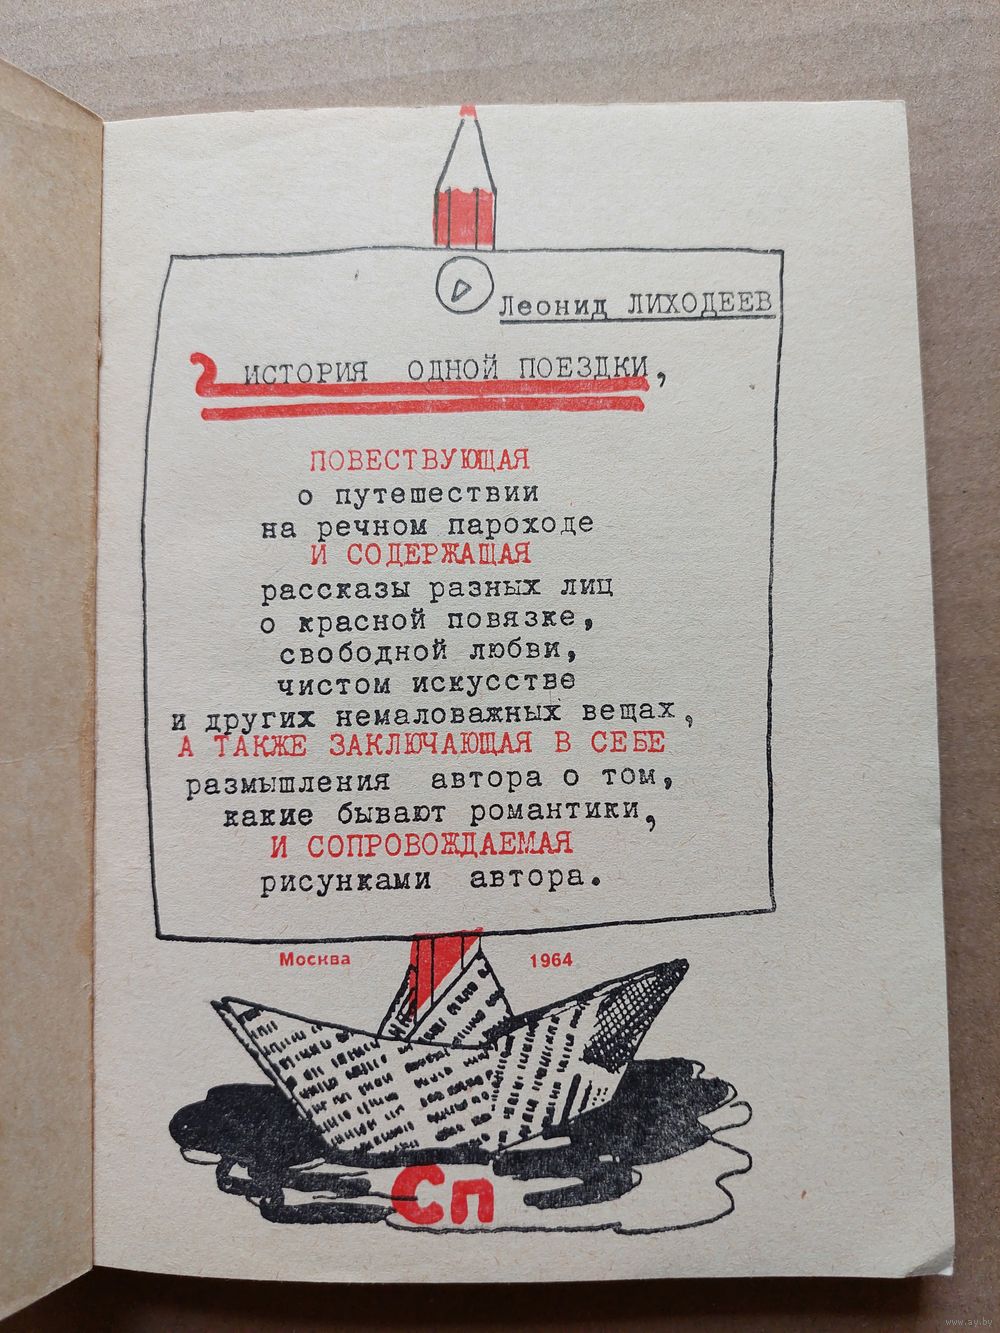 Леонид ЛИХОДЕЕВ
ИСТОРИЯ ОДНОЙ ПОЕЗДКИ,
ПОВЕСТВУЮЩАЯ
о путешествии
на речном пароходе
И СОДЕРЖАЩАЯ
рассказы разных лиц
о красной повязке,
свободной любви,
чистом искусстве
и других немаловажных вещах,
А ТАКЖЕ ЗАКЛЮЧАЮЩАЯ В СЕБЕ
размышления автора о том,
какие бывают романтики,
И СОПРОВОЖДАЕМАЯ
рисунками автора.
Москва 1964
Сп
www.ay.by